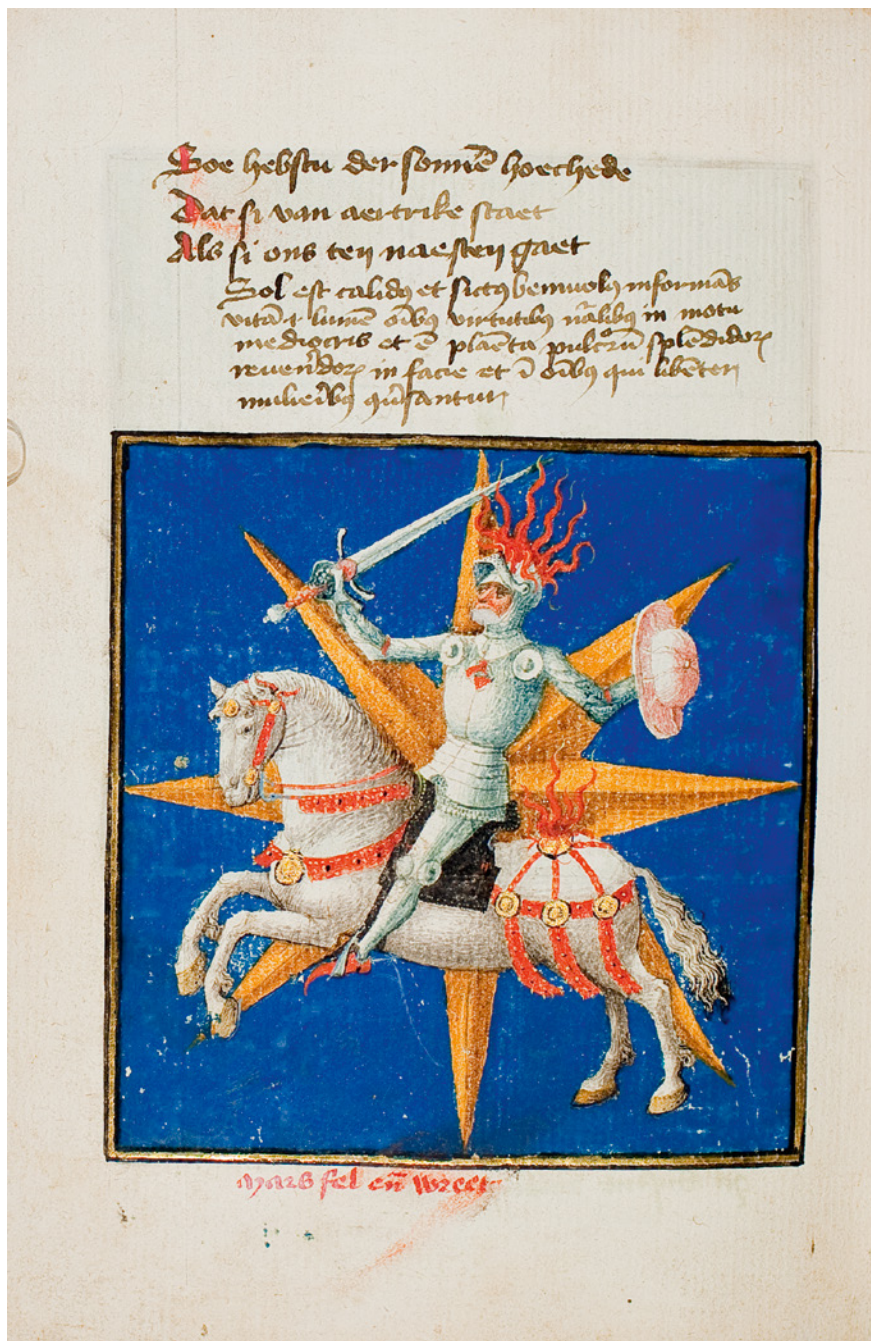 Soe hebstu der sonnē hoechede
Dat si van aertrike staet
Als si ons ten naesten gaet
Sol est calidꝰ et siccꝰ beniuolꝰ informās
vitā et lumē oībꝰ virtutibꝰ nālibꝰ in motu
mediocris et ē planēta pulcrorū splēdidorꝝ
reuerēdorꝝ in facie et ī oībꝰ qui libēter
mulieribꝰ
mars fel eñ wreet